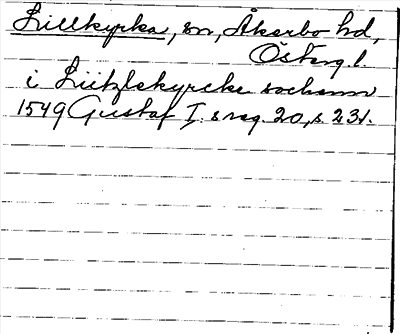 Lillkyrka, sn, Åkerbo hd,
Östergl.
i Lütztlekyrcke sochenn
1549 Gustaf I:s reg. 20, s. 231.